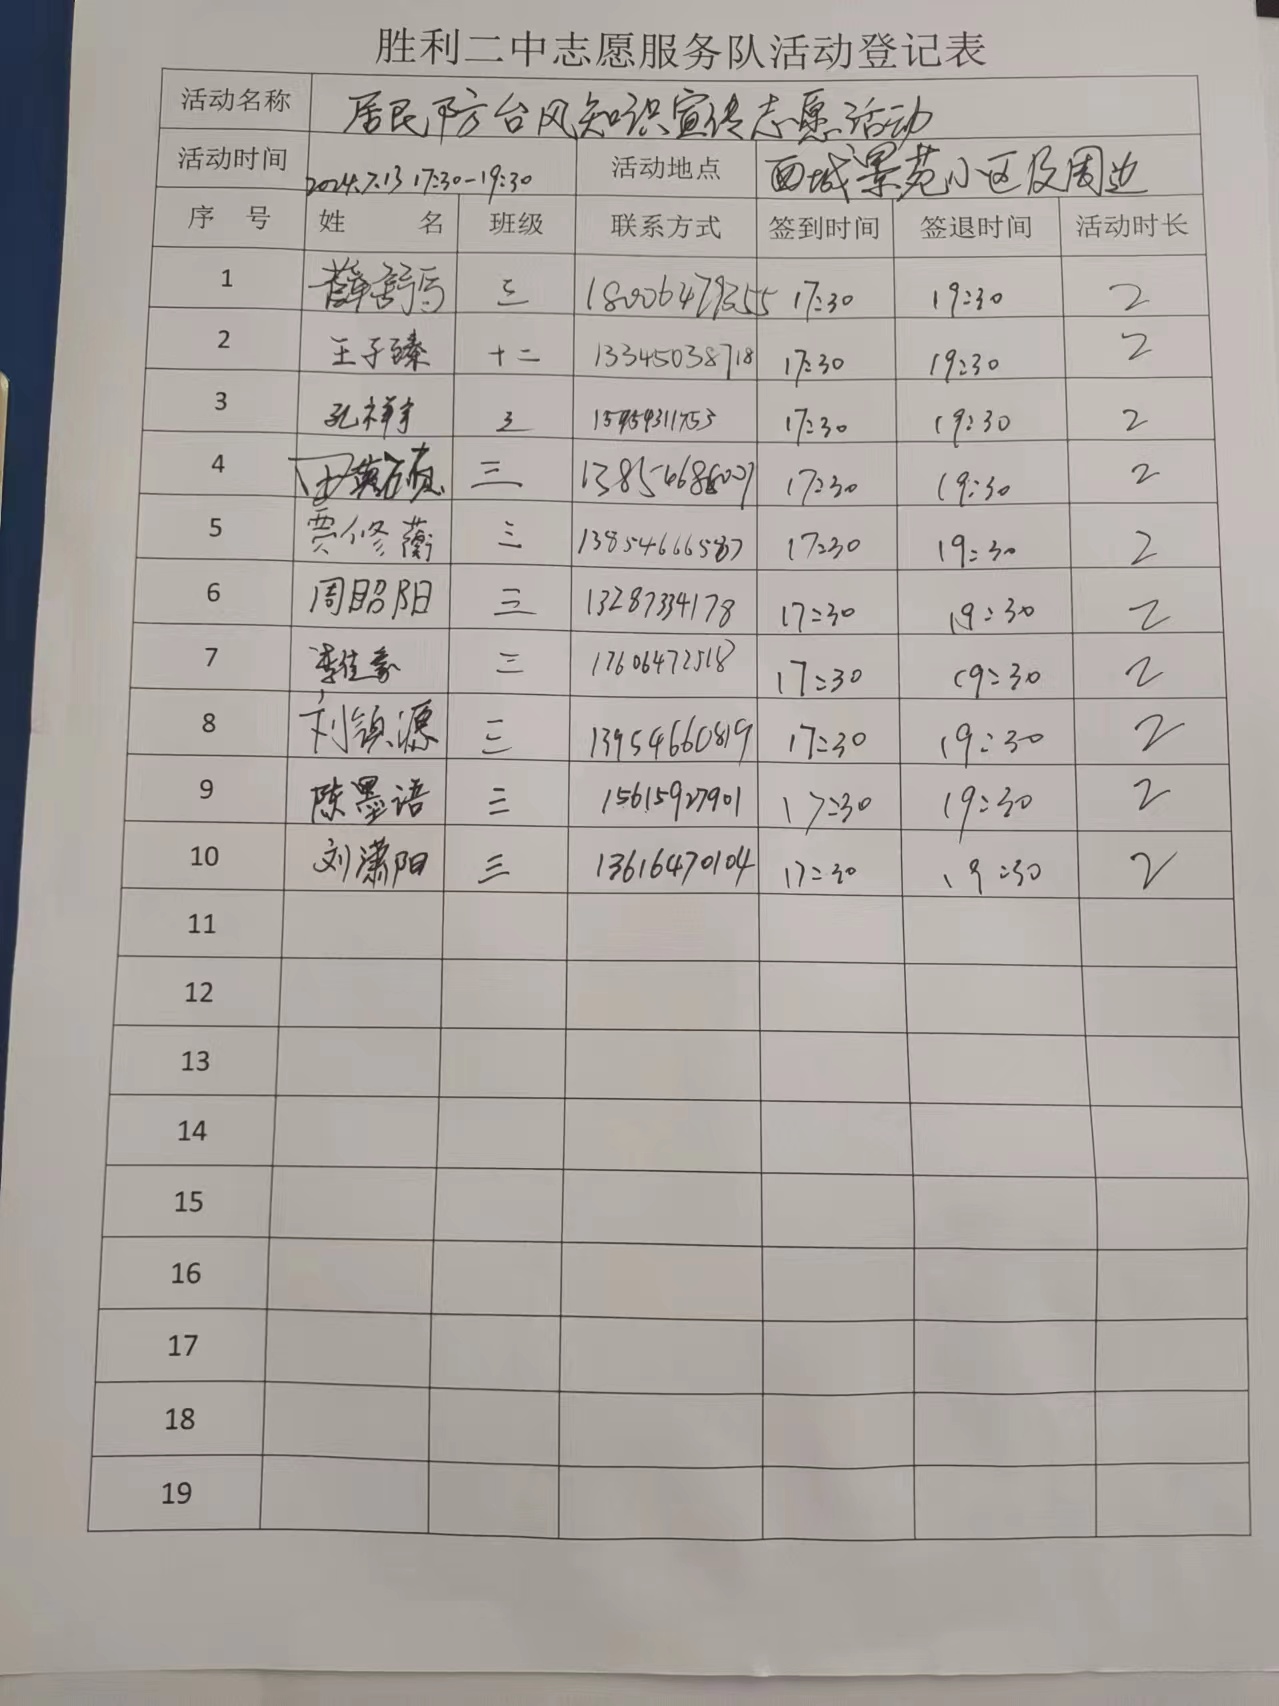 胜利二中志愿服务队活动登记表
活动名称 居民防台风知识宣传志愿活动
活动时间 2024.7.13 17:30-19:30 活动地点 西城景苑小区及周边
序 号 姓 名 班级 联系方式 签到时间 签退时间 活动时长
1 薛 三 18006479355 17:30 19:30 2
2 王子臻 十二 13345038718 17:30 19:30 2
3 孔祥宇 三 15959311753 17:30 19:30 2
4 三 17:30 19:30 2
5 贾修蘅 三 13854666587 17:30 19:30 2
6 周昭阳 三 13287334178 17:30 19:30 2
7 李佳豪 三 17606472518 17:30 19:30 2
8 刘镇源 三 13954660819 17:30 19:30 2
9 陈墨语 三 15615927901 17:30 19:30 2
10 刘潇阳 三 13616470104 17:30 19:30 2
11
12
13
14
15
16
17
18
19